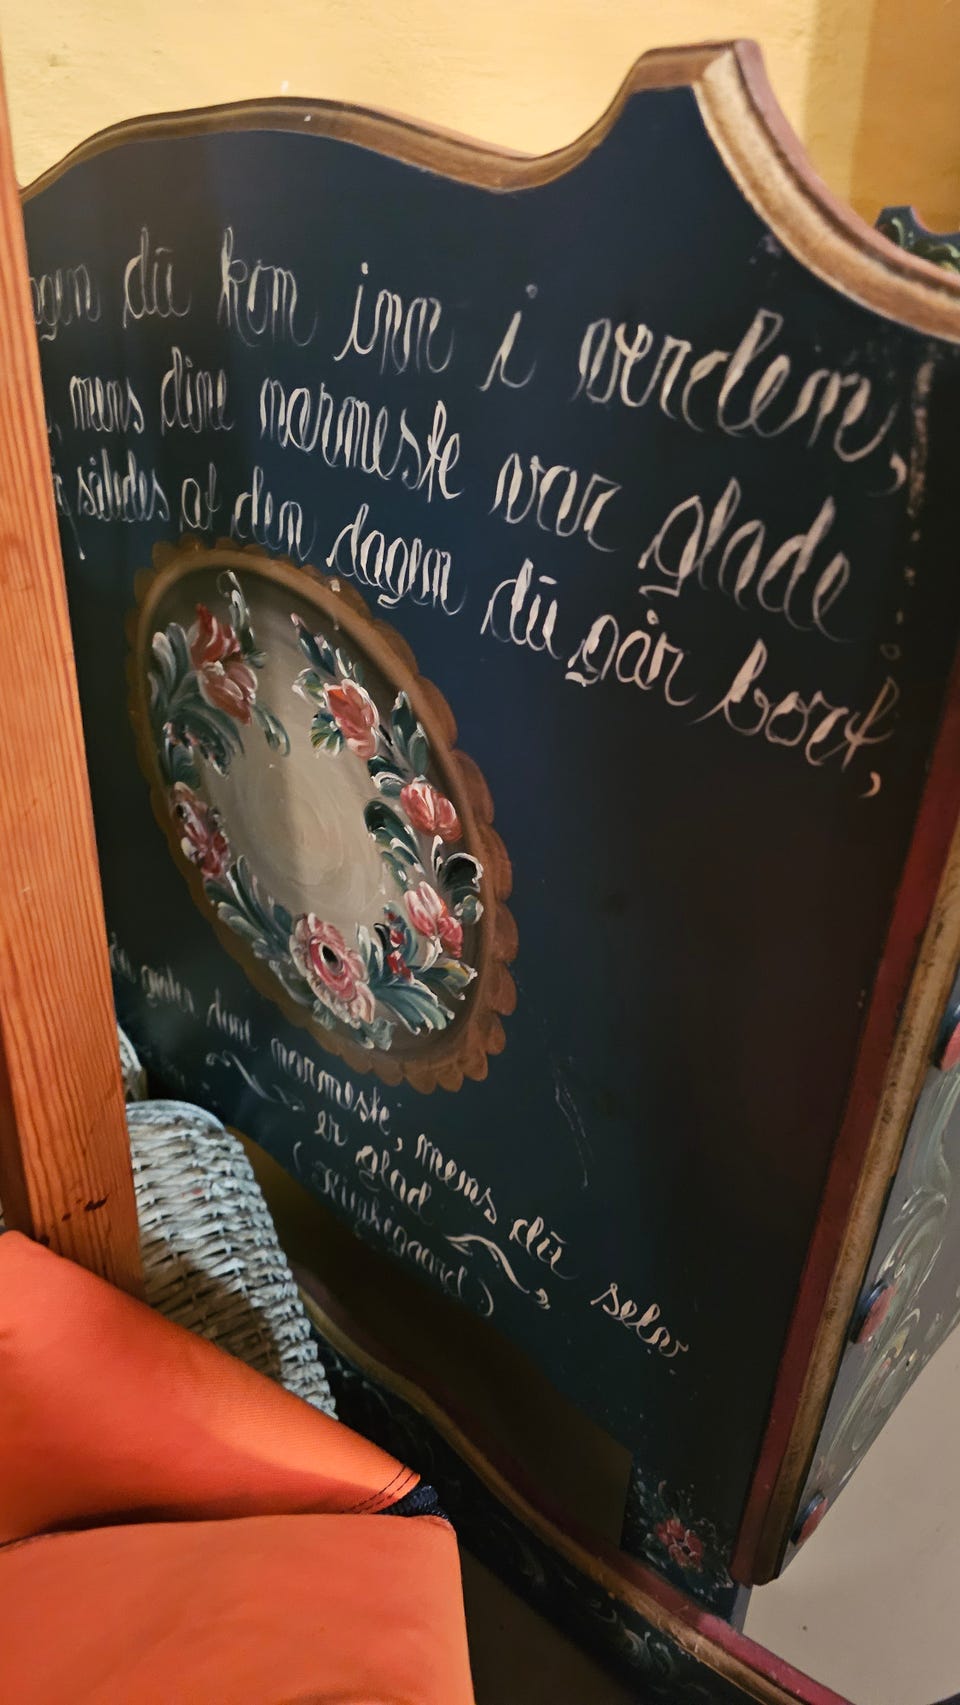 du kom inn i verden,
mens dine nærmeste var glade
således at den dagen du går bort,
dine nærmeste, mens du selv
er glad,
(Kierkegaard)